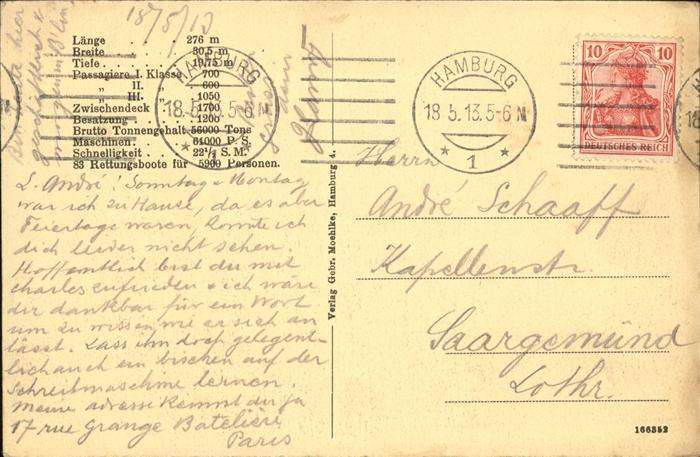 18/5/13
Länge . . . . . 276 m
Breite . . . . . 30,5 m
Tiefe . . . . . 19,75 m
Passagiere I. Klasse . 700
„ II. „ . 600
„ III. „ . 1050
Zwischendeck . . 1700
Besatzung . . . 1200
Brutto Tonnengehalt 56000 Tons
Maschinen. . . . 61000 P. S.
Schnelligkeit . . . 22½ S. M.
83 Rettungsboote für 5900 Personen.
L. André! Sonntag u Montag
war ich zu Hause, da es aber
Feiertage waren, konnte ich
dich leider nicht sehen.
Hoffentlich bist du mit
Charles zufrieden & ich wäre
dir dankbar für ein Wort
um zu wissen wie er sich an
lässt. Lass ihn doch gelegent-
lich auch ein bischen auf der
Schreibmaschine lernen.
Meine adresse kennst du ja
17 rue Grange Batelière
Paris
bin heute hier
geschäftlich &
Verlag Gebr. Moehlke, Hamburg 4.
HAMBURG
18.5.13.5-6 N
* 1 *
HAMBURG
18.5. 5-6 N
10 10
DEUTSCHES REICH
Herrn
André Schaaff
Kapellenstr
Saargemünd
Lothr.
166352